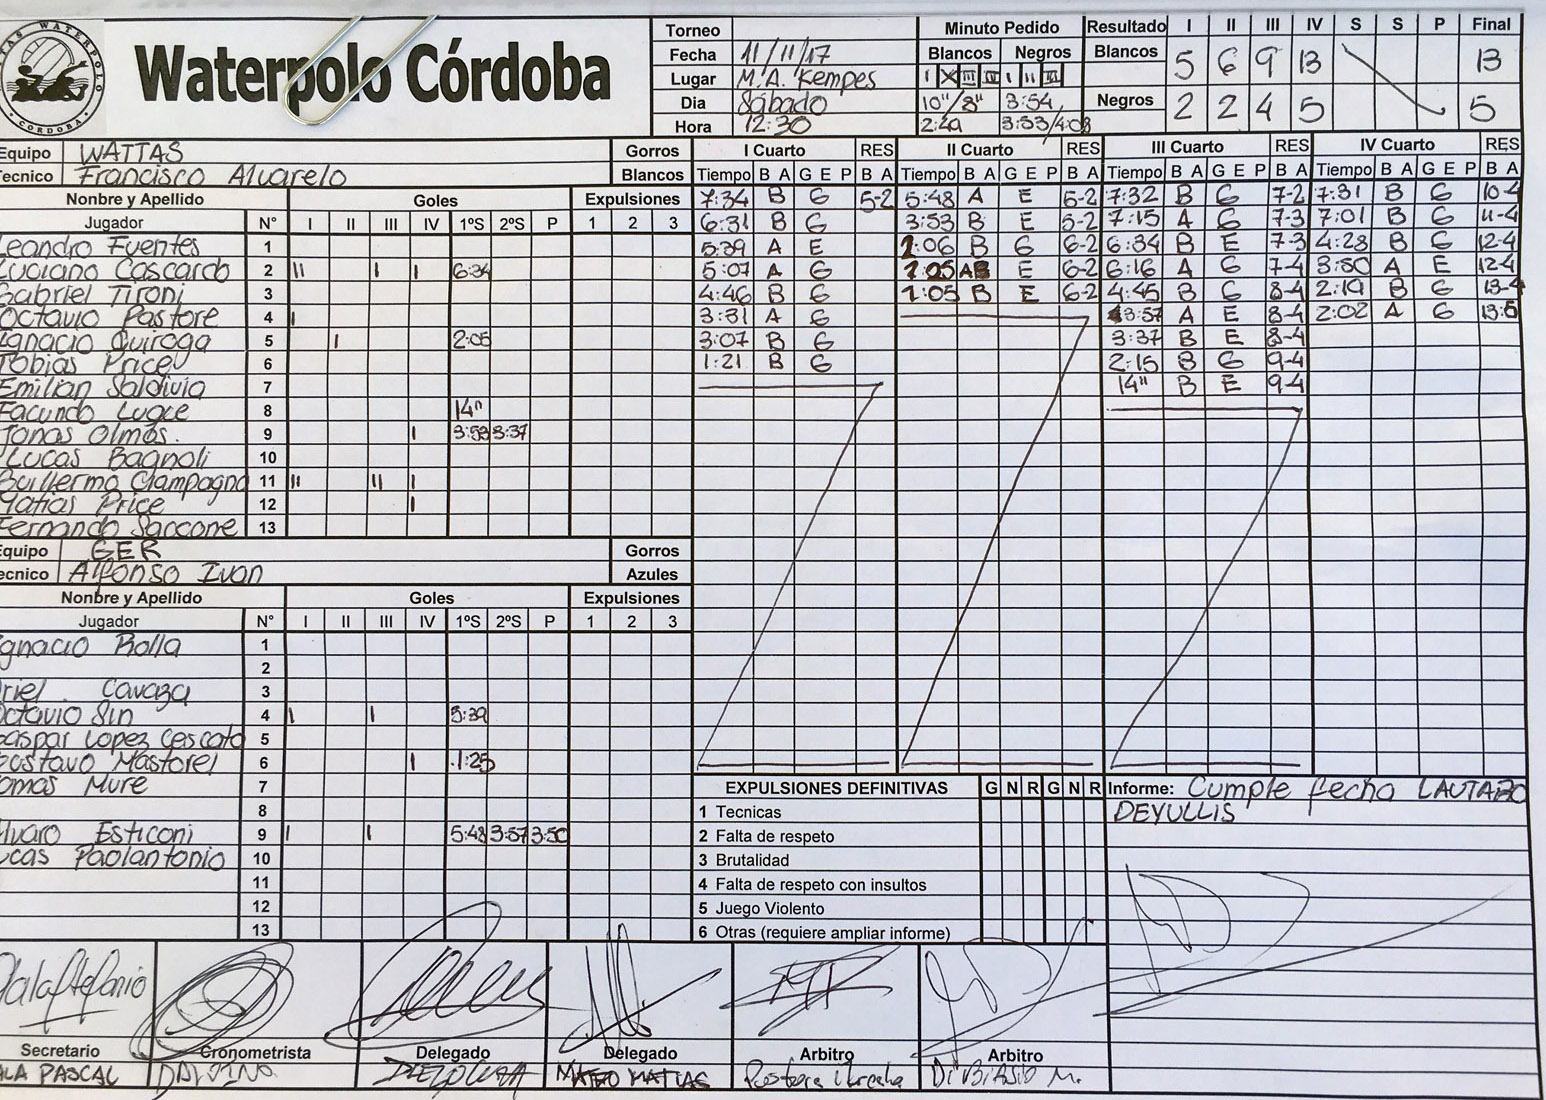 WATTAS WATERPOLO
CORDOBA
Waterpolo Córdoba
Torneo
Fecha 11/11/17
Lugar M.A. Kempes
Dia Sábado
Hora 12:30
Minuto Pedido
Blancos Negros
I X III IV I II III
10"/8" 3:54
2:49 3:53/4:08
Resultado I II III IV S S P Final
Blancos 5 6 9 13 13
Negros 2 2 4 5 5
Equipo WATTAS Gorros
Tecnico Francisco Alvarelo Blancos
Nombre y Apellido Goles Expulsiones
Jugador N° I II III IV 1ºS 2ºS P 1 2 3
Leandro Fuentes 1
Luciano Cascardo 2 II I I 6:34
Gabriel Tironi 3
Octavio Pastore 4 I
Ignacio Quiroga 5 I 2:05
Tobias Price 6
Emilian Saldivia 7
Facundo Luque 8 14"
Jonas Olmos. 9 I 3:53 3:37
Lucas Bagnoli 10
Guillermo Ciampagna 11 II II I
Matias Price 12 I
Fernando Saccone 13
I Cuarto RES
Tiempo B A G E P B A
7:34 B G 5-2
6:31 B G
5:39 A E
5:07 A G
4:46 B G
3:31 A G
3:07 B G
1:21 B G
II Cuarto RES
Tiempo B A G E P B A
5:48 A E 5-2
3:53 B E 5-2
1:06 B G 6-2
1:05 E 6-2
1:05 B E 6-2
III Cuarto RES
Tiempo B A G E P B A
7:32 B G 7-2
7:15 A G 7-3
6:34 B E 7-3
6:16 A G 7-4
4:45 B G 8-4
3:57 A E 8-4
3:37 B E 8-4
2:15 B G 9-4
14" B E 9-4
IV Cuarto RES
Tiempo B A G E P B A
7:31 B G 10-4
7:01 B G 11-4
4:28 B G 12-4
3:50 A E 12-4
2:19 B G 13-4
2:02 A G 13-5
Equipo GER Gorros
Tecnico Alfonso Ivan Azules
Nonbre y Apellido Goles Expulsiones
Jugador N° I II III IV 1ºS 2ºS P 1 2 3
Ignacio Rolla 1
2
Uriel Cavaza 3
Octavio Sin 4 I I 5:39
Gaspar Lopez Cescato 5
Gustavo Mastorel 6 I 1:25
Tomas Mure 7
8
Alvaro Esticoni 9 I I 5:48 3:57 3:50
Lucas Paolantonio 10
11
12
13
EXPULSIONES DEFINITIVAS G N R G N R
1 Tecnicas
2 Falta de respeto
3 Brutalidad
4 Falta de respeto con insultos
5 Juego Violento
6 Otras (requiere ampliar informe)
Informe: Cumple fecha LAUTARO
DEYULLIS
Secretario Cronometrista Delegado Delegado Arbitro Arbitro
PASCAL MATEO MATIAS Di BIASIO M.